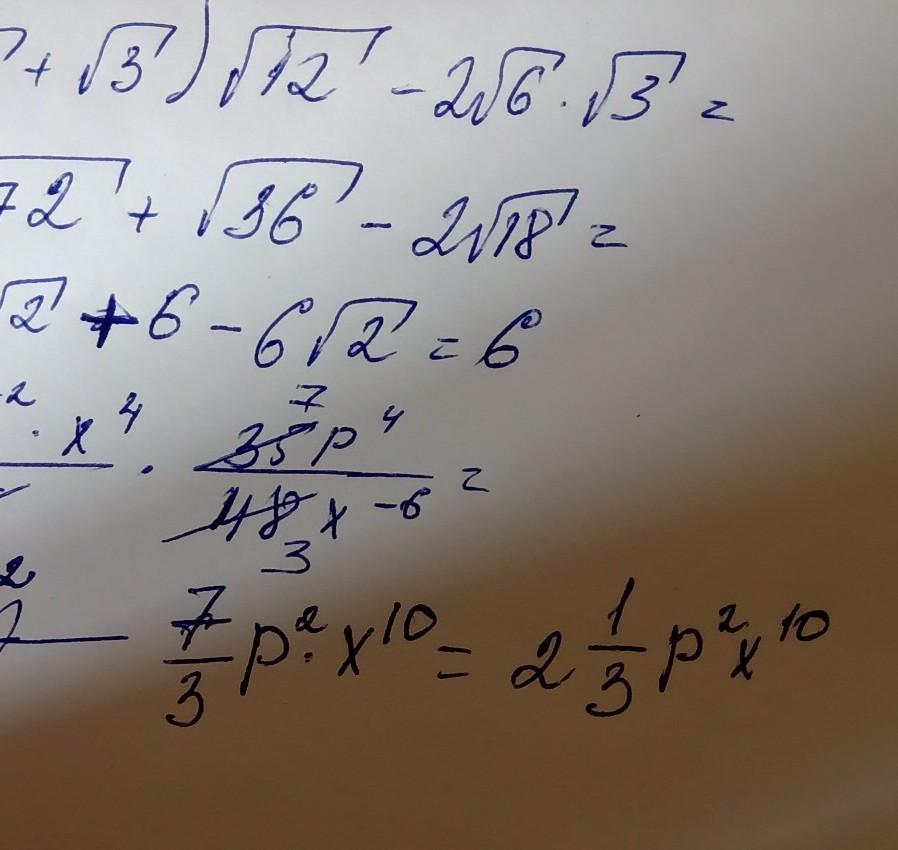 + √3) √12 - 2√6 · √3 =
72 + √36 - 2√18 =
√2 + 6 - 6√2 = 6
-2 · x^4 · 7 35p^4 / 48x^-6 3 =
2
7/3 p^2 · x^10 = 2 1/3 p^2 x^10